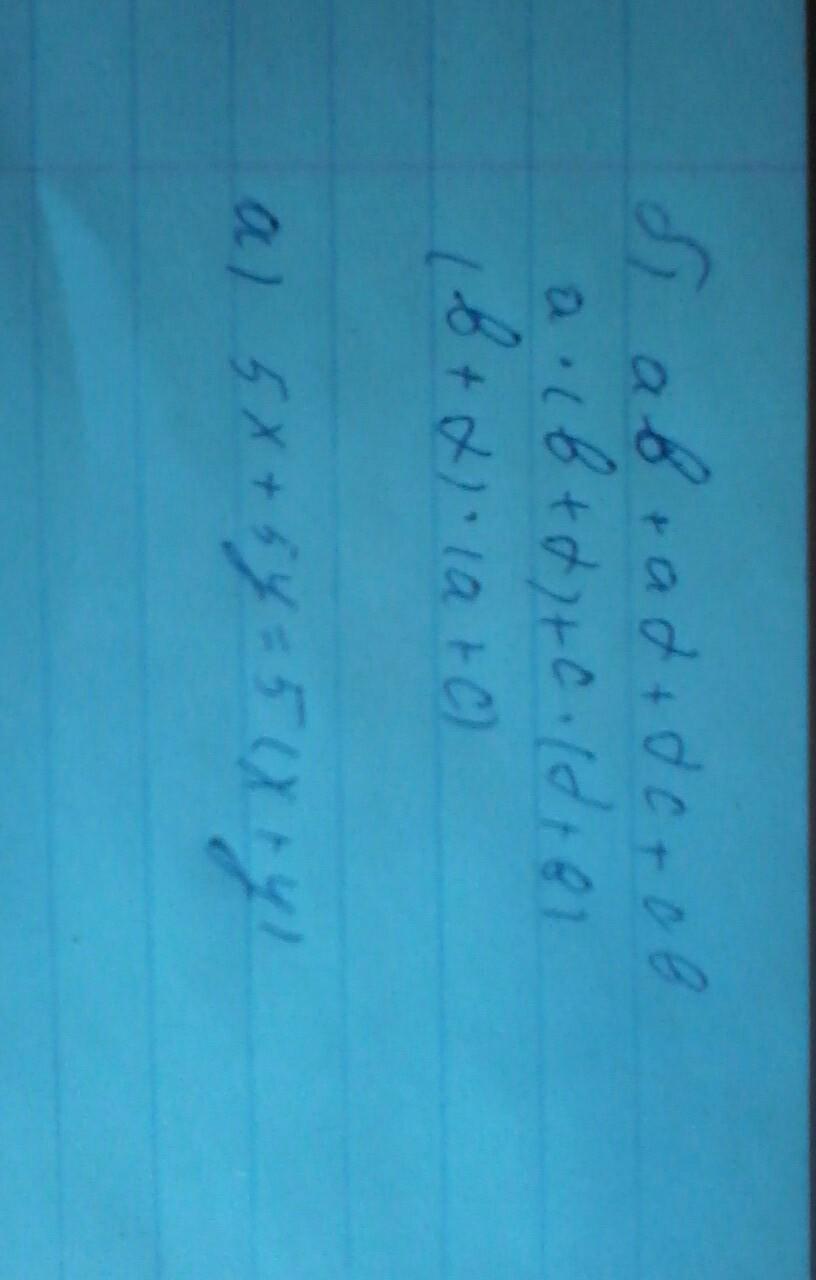 б) ab + ad + dc + cb
a · (b + d) + c · (d + b)
(b + d) · (a + c)
а) 5x + 5y = 5 (x + y)